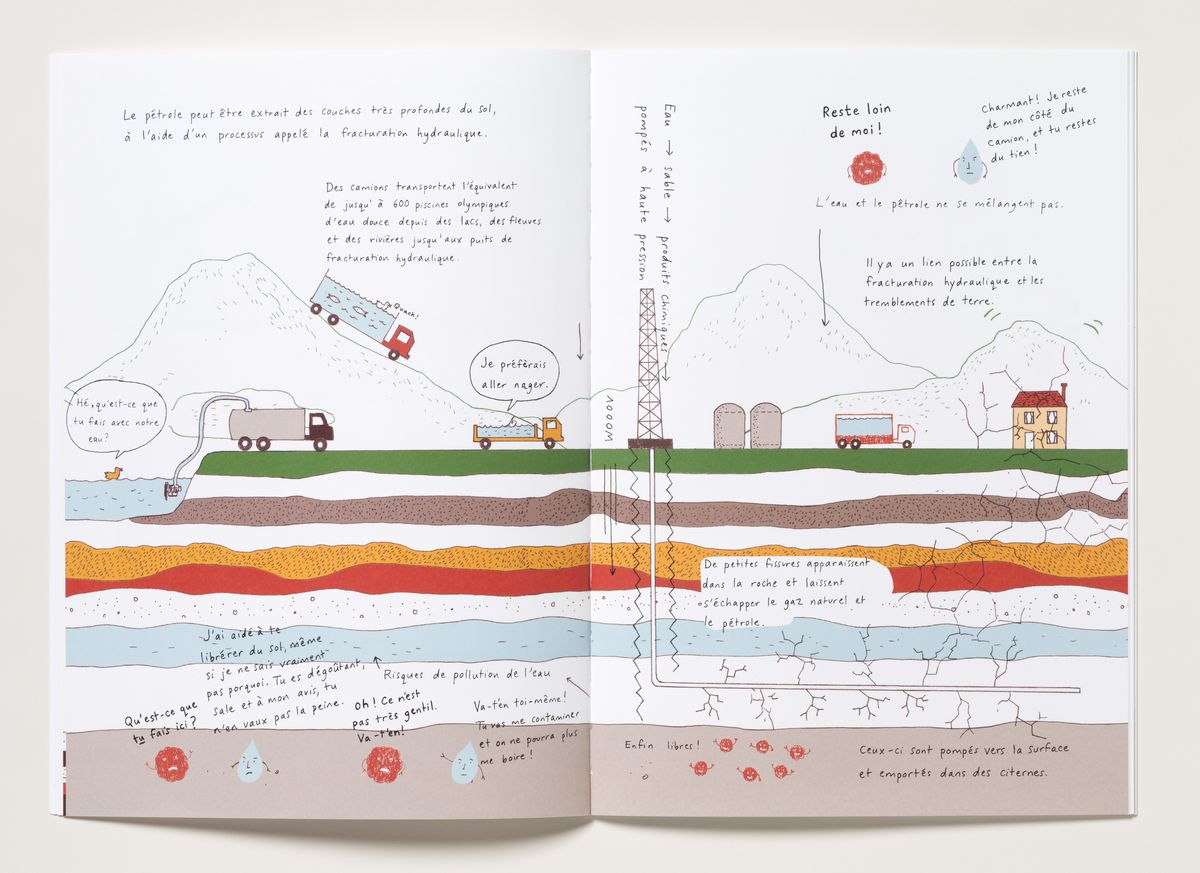 Le pétrole peut être extrait des couches très profondes du sol,
à l'aide d'un processus appelé la fracturation hydraulique.
Des camions transportent l'équivalent
de jusqu'à 600 piscines olympiques
d'eau douce depuis des lacs, des fleuves
et des rivières jusqu'aux puits de
fracturation hydraulique.
Quack!
Je préfèrais
aller nager.
Hé, qu'est-ce que
tu fais avec notre
eau?
J'ai aidé à te
librérer du sol, même
si je ne sais vraiment
pas porquoi. Tu es dégoûtant,
sale et à mon avis, tu
n'en vaux pas la peine.
Risques de pollution de l'eau
Qu'est-ce que
tu fais ici?
Oh! Ce n'est
pas très gentil.
Va-t'en!
Va-t'en toi-même!
Tu vas me contaminer
et on ne pourra plus
me boire!
Eau → sable → produits chimiques →
pompés à haute pression
1000M
Reste loin
de moi!
Charmant! Je reste
de mon côté du
camion, et tu restes
du tien!
L'eau et le pétrole ne se mélangent pas.
Il y a un lien possible entre la
fracturation hydraulique et les
tremblements de terre.
De petites fissures apparaissent
dans la roche et laissent
s'échapper le gaz naturel et
le pétrole.
Enfin libres!
Ceux-ci sont pompés vers la surface
et emportés dans des citernes.